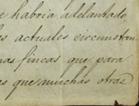 e habria adelantado
s actuales circunstan
nas fincas que para
s que muchas otras